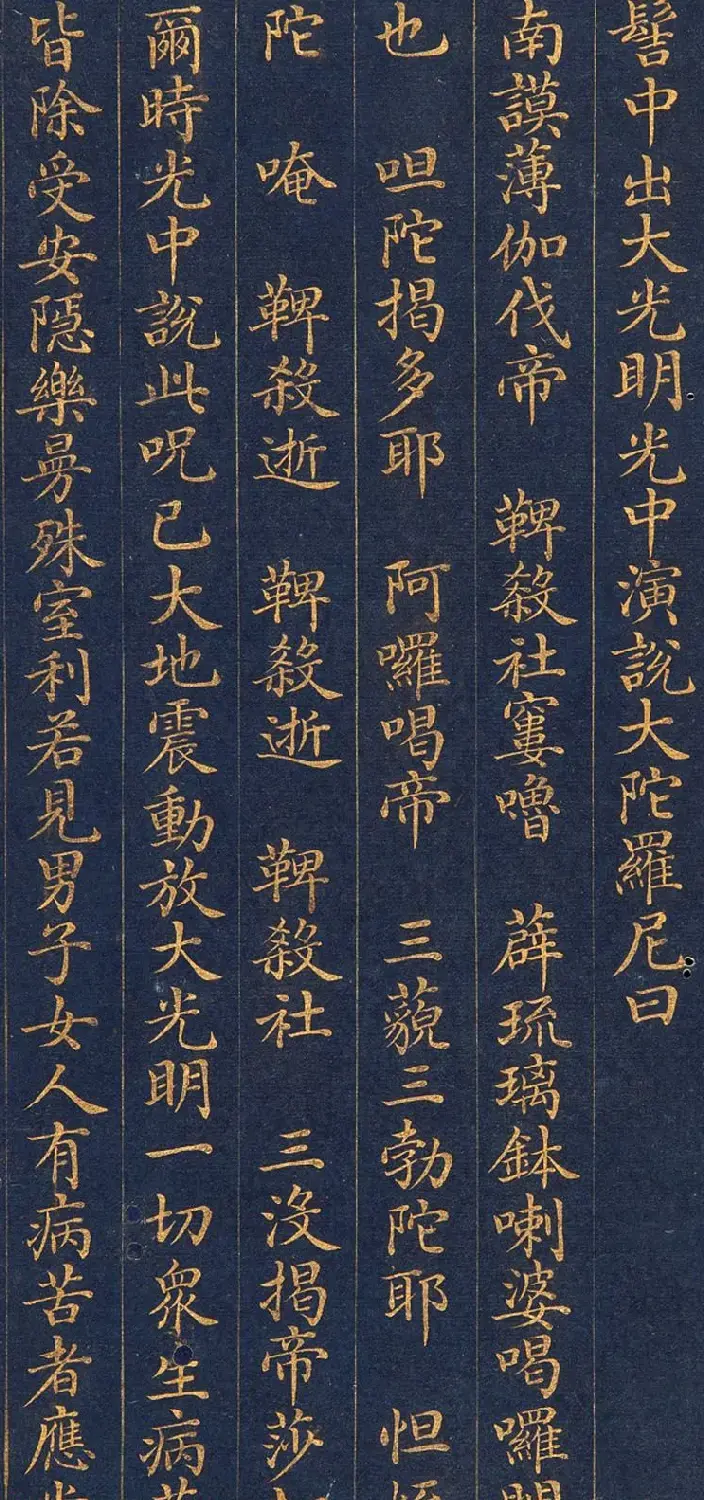 髻中出大光明光中演說大陀羅尼曰
南謨薄伽伐帝 鞞殺社窶嚕 薜琉璃鉢喇婆喝囉闍
也 呾陀揭多耶 阿囉喝帝 三藐三勃陀耶 怛姪
陀 唵 鞞殺逝 鞞殺逝 鞞殺社 三沒揭帝莎
爾時光中說此呪已大地震動放大光明一切衆生病苦
皆除受安隱樂曼殊室利若見男子女人有病苦者應